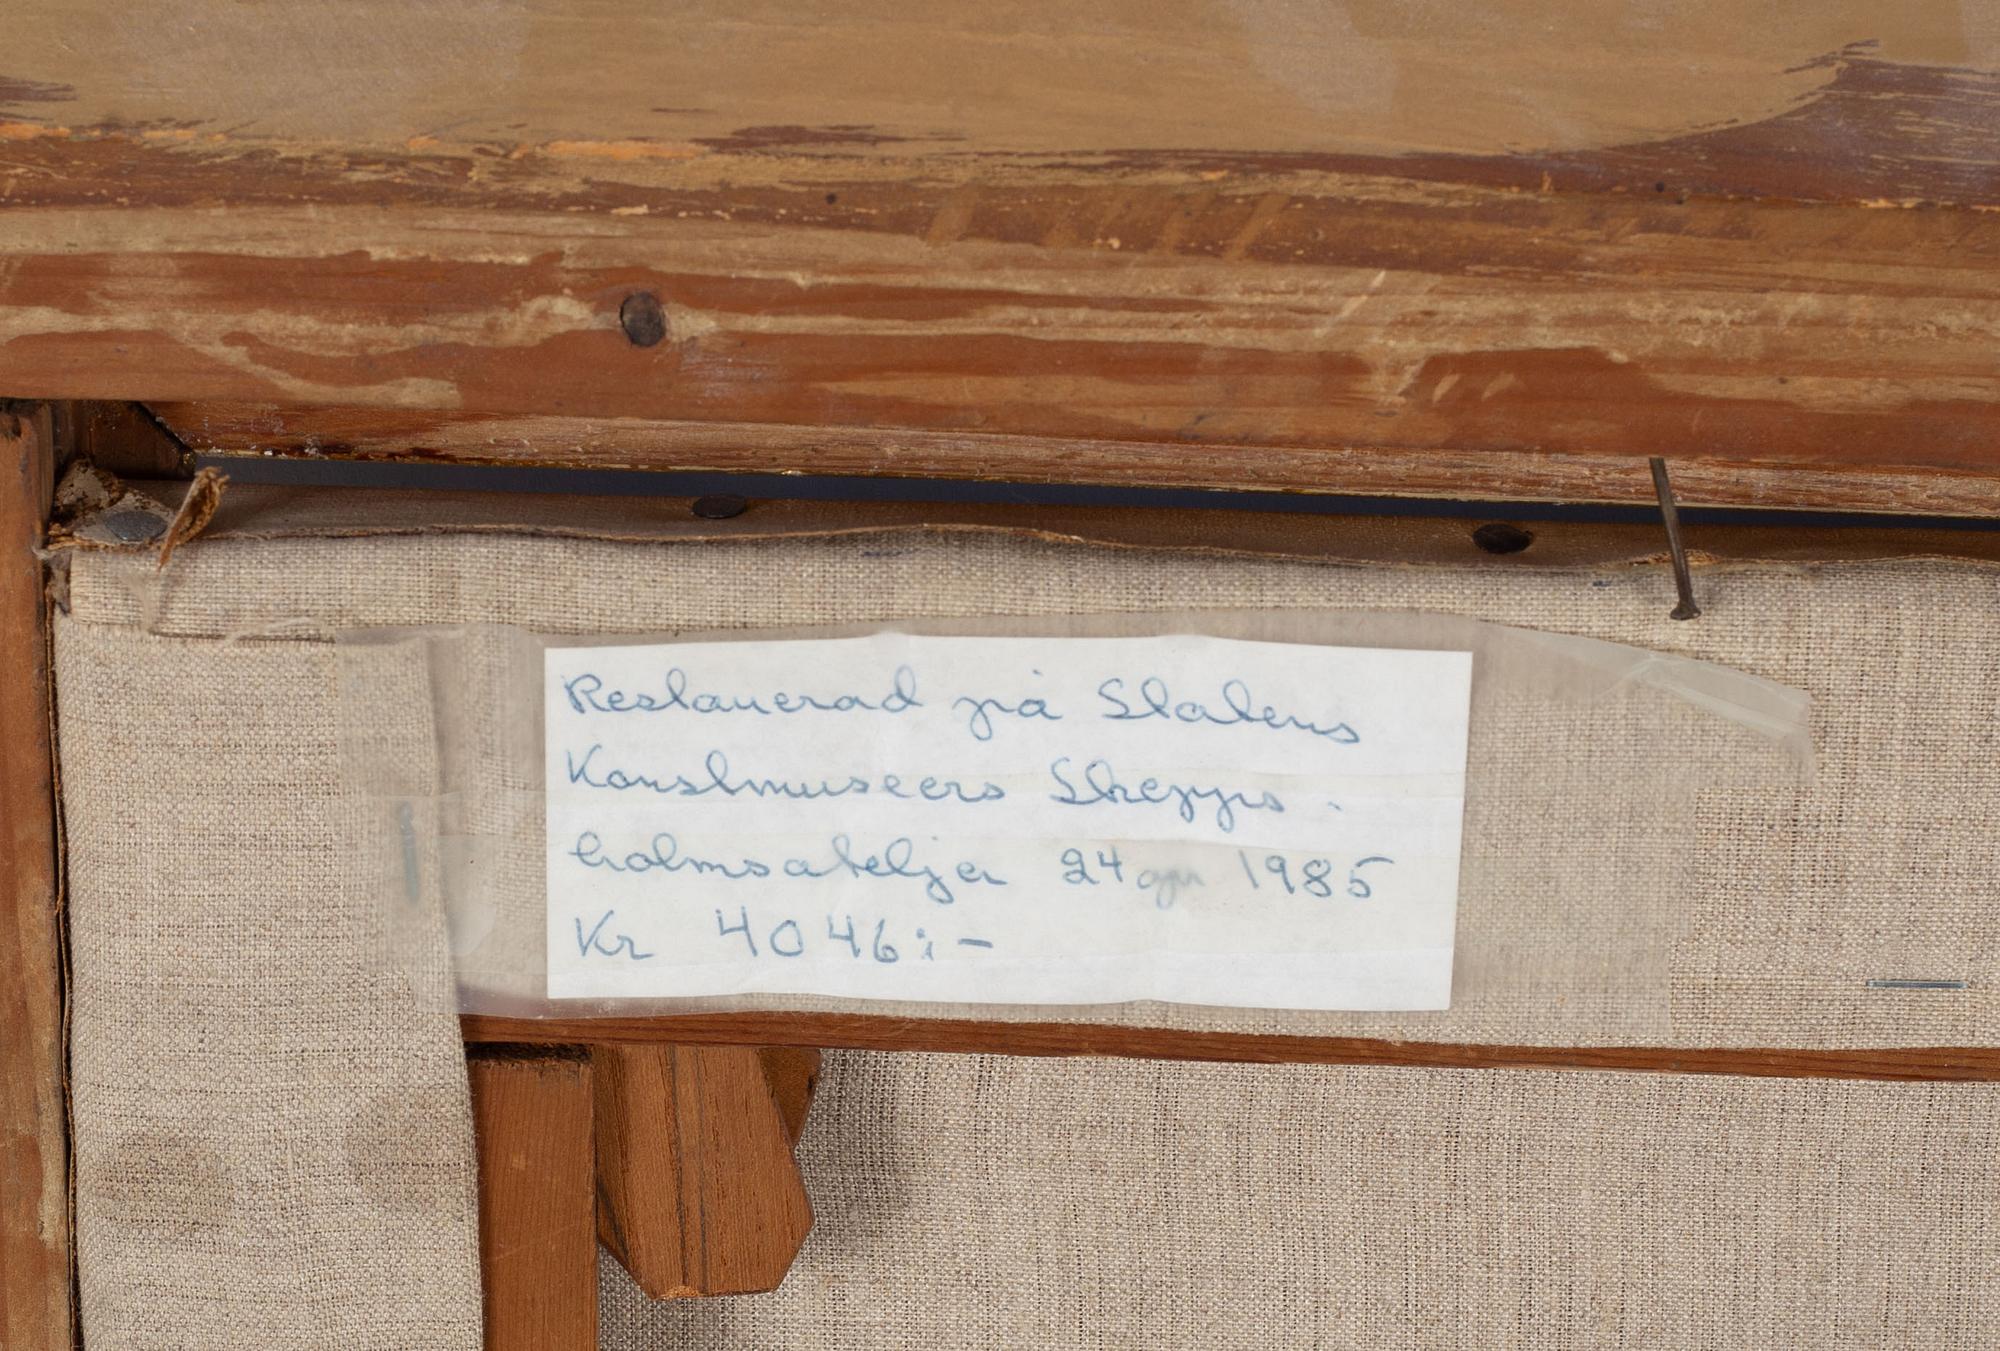 Restaurerad på Statens
Konstmuseers Skepps-
holmsateljer 24 apr 1985
Kr 4046:-